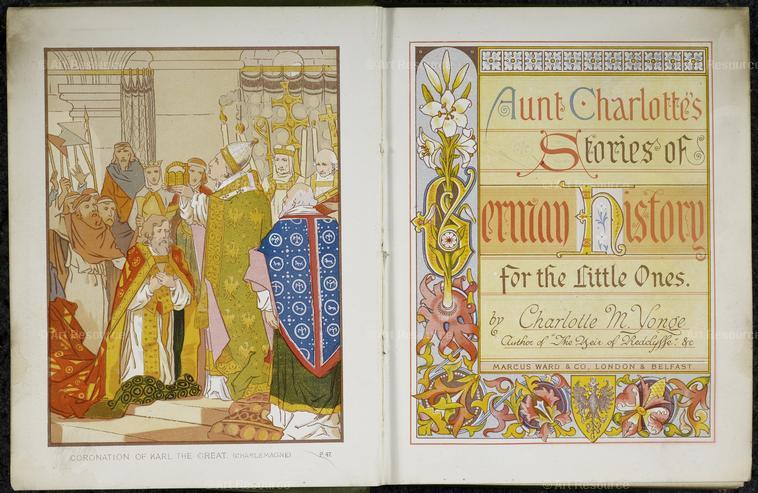 CORONATION OF KARL THE GREAT. (CHARLEMAGNE) P. 47.
Aunt Charlotte's
Stories of
German History
for the Little Ones.
by Charlotte M. Yonge
Author of "The Heir of Redclyffe," &c
MARCUS WARD & CO., LONDON & BELFAST.
© Art Resource